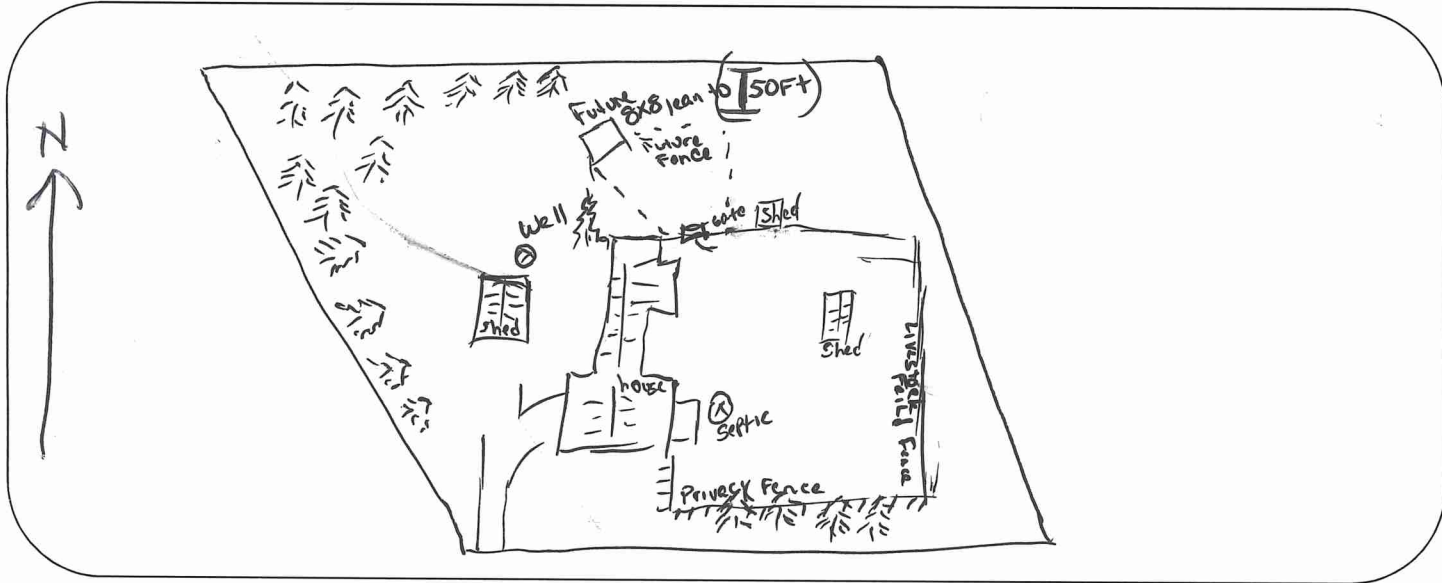 N
Future 8x8 lean to
50Ft
Future
Fence
Well
Gate
Shed
Shed
Shed
house
Septic
Livestock
Feild Fence
Privacy Fence